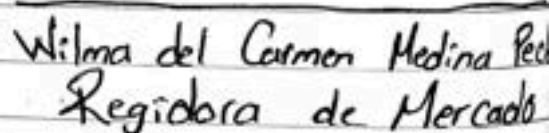 Wilma del Carmen Medina Pech
Regidora de Mercado